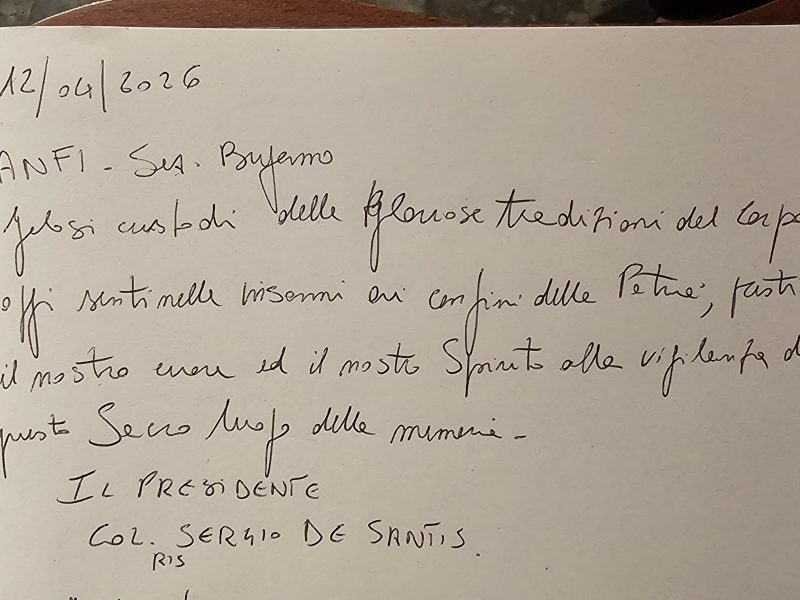 12/04/2026
ANFI - Sez. Palermo
gelosi custodi delle gloriose tradizioni del Corpo
oggi sentinelle insonni ai confini della Patria, 
il nostro cuore ed il nostro Spirito alla vigilanza d
questo Sacro luogo della memoria -
IL PRESIDENTE
COL. SERGIO DE SANTIS.
RIS